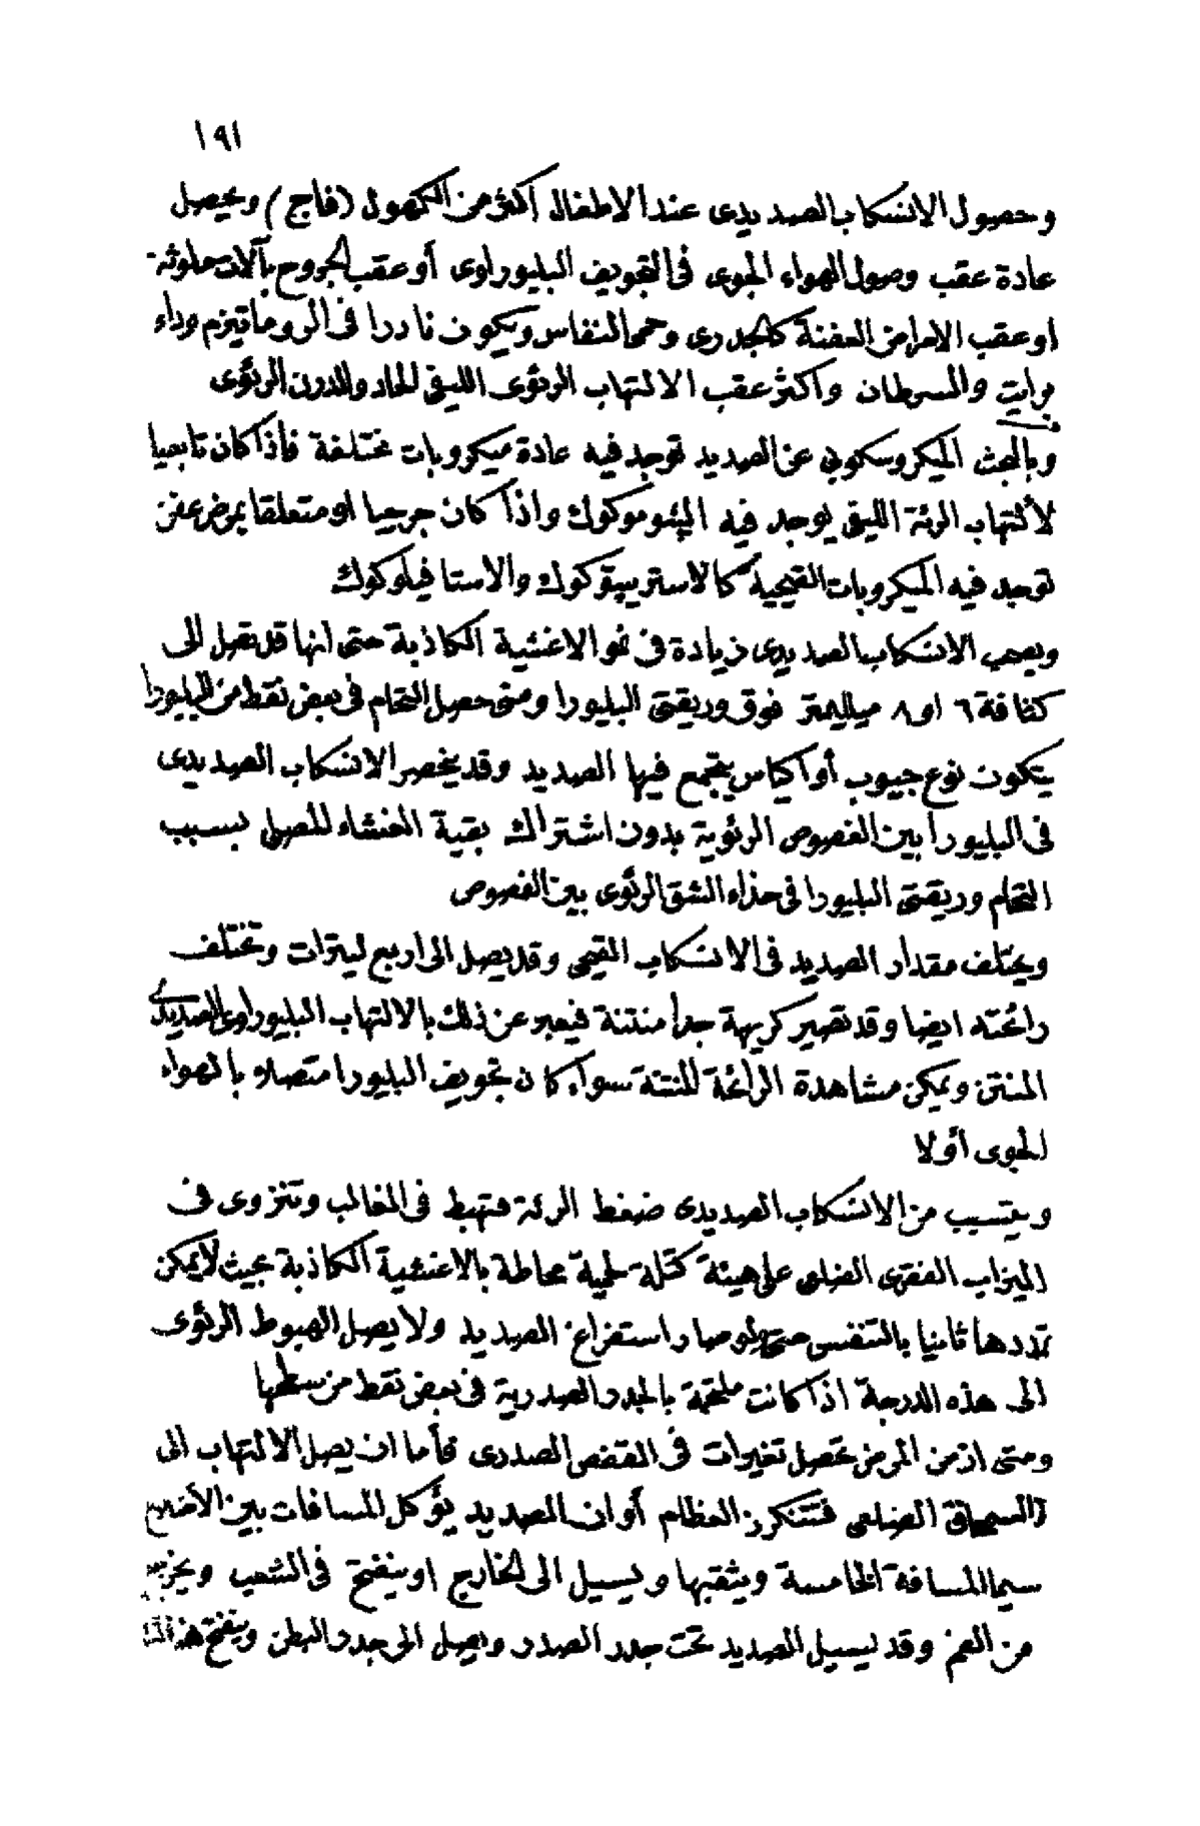 ١٩١
وحصول الانسكاب الصديدى عند الاطفال أكثر من الكهول (فاج) ويحصل
عادة عقب وصول الهواء الجوى فى التجويف البليوراوى أو عقب الجروح بآلات ملوثة
او عقب الامراض العفنة كالجدرى وحمى النفاس ويكون نادرا فى الروماتيزم وداء
برايت والسرطان واكثر عقب الالتهاب الرئوى الليفى الحاد والدرن الرئوى
وبالبحث الميكروسكوبى عن الصديد توجد فيه عادة ميكروبات مختلفة فأذا كان تابعيا
لألتهاب الرئة الليفى يوجد فيه البنوموكوك واذا كان جرحيا او متعلقا بمرض عفن
توجد فيه الميكروبات القيحية كالاستريبتوكوك والاستافيلوكوك
ويصحب الانسكاب الصديدى زيادة فى نمو الاغشية الكاذبة حتى انها قد تصل الى
كثافة ٦ او ٨ ميلليمتر فوق وريقتى البليورا ومتى حصل التحام فى بعض نقط من البليورا
يتكون نوع جيوب أو اكياس يتجمع فيها الصديد وقد يخصر الانسكاب الصديدى
فى البليورا بين الفصوص الرئوية بدون اشتراك بقية الغشاء المصلى بسبب
التحام وريقتى البليورا فى حذاء الشق الرئوى بين الفصوص
ويختلف مقدار الصديد فى الانسكاب القيحى وقد يصل الى اربع ليترات وتختلف
رائحته ايضا وقد تصير كريهة جدا منتنة فيعبر عن ذلك بالالتهاب البليوراوى الصديدى
المنتن ويمكن مشاهدة الرائحة المنتنة سواء كان تجويف البليورا متصلا بالهواء
الجوى أولا
ويتسبب من الانسكاب الصديدى ضغط الرئة فتهبط فى الغالب وتنزوى فى
الميزاب الفقرى الضلعى على هيئة كتلة لحمية محاطة بالاغشية الكاذبة بحيث لا يمكن
تمددها ثانيا بالتنفس حتى ولو صار استفراغ الصديد ولا يصل الهبوط الرئوى
الى هذه الدرجة اذا كانت ملتحمة بالجدر الصدرية فى بعض نقط من سطحها
ومتى ازمن المرض تحصل تغيرات فى القفص الصدرى فأما ان يصل الالتهاب الى
السمحاق الضلعى فتتنكرز العظام أو ان الصديد يؤكل المسافات بين الأضلاع
سيما المسافة الخامسة ويثقبها ويسيل الى الخارج او ينفتح فى الشعب ويخرج
من الفم وقد يسيل الصديد تحت جدر الصدر ويصل الى جدر البطن وينفتح